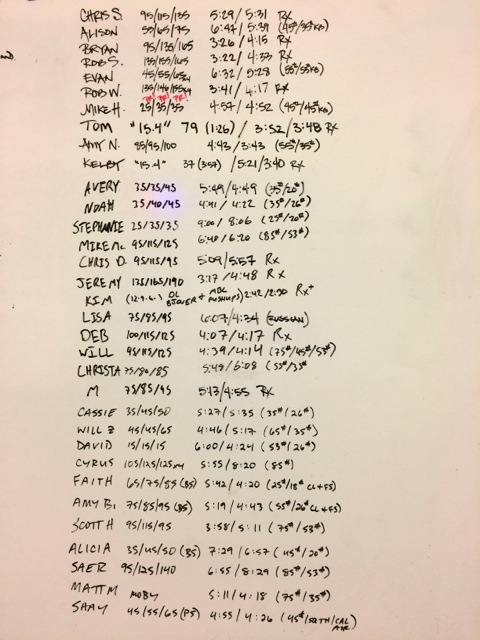 CHRIS S. 95/115/135 5:29 / 5:31 Rx
ALISON 55/65/75 6:44 / 5:39
BRYAN 95/135/165 3:26 / 4:15 Rx
ROB S. 135/155/165 3:22 / 4:33 Rx
EVAN 45/55/65 6:32 / 5:28
ROB W. 3:41 / 4:17 Rx
PR! PR! PR!
MIKE H. 25/35/35 4:57 / 4:52
TOM "15.4" 79 (1:26) / 3:52 / 3:48 Rx
AMY N. 85/95/100 4:43 / 3:43 (55#/35#)
KELBY "15.4" 37 (3:57) / 5:21 / 3:40 Rx
AVERY 35/35/45 5:49 / 4:49 (35#/20#)
NOAH 35/40/45 4:41 / 4:22 (35#/26#)
STEPHANIE 25/35/35 9:00 / 8:06 (25#/20#)
MIKE Mc. 95/115/125 6:40 / 6:20 (85#/53#)
CHRIS D. 95/115/95 5:09 / 5:57 Rx
JEREMY 135/165/190 3:17 / 4:48 Rx
KIM (12.9.6.) 2:42 / 2:30 Rx+
LISA 75/85/95 6:07 / 4:34 (RUSSIAN)
DEB 100/115/125 4:07 / 4:17 Rx
WILL 95/115/125 4:39 / 4:14 (75#/45#/53#)
CHRISTA 75/80/85 5:48 / 6:08 (55#/35#)
M 75/85/95 5:13 / 4:55 Rx
CASSIE 35/45/50 5:27 / 5:35 (35#/26#)
WILL Z 45/45/65 4:46 / 5:17 (65#/35#)
DAVID 15/15/15 6:00 / 4:24 (53#/26#)
CYRUS 105/125/125 5:55 / 8:20 (85#)
FAITH 65/75/85 (BS) 5:42 / 4:20 (25#/18# CL+FS)
AMY B. 75/85/95 (BS) 5:19 / 4:43 (55#/26# CL+FS)
SCOTT H 95/115/95 3:58 / 5:11 (75#/53#)
ALICIA 35/45/50 (BS) 7:29 / 6:57 (45#/20#)
SAER 95/125/140 6:55 / 8:29 (85#/53#)
MATT M MOBY 5:11 / 4:18 (75#/35#)
SHAY 45/55/65 (PS) 4:55 / 4:26